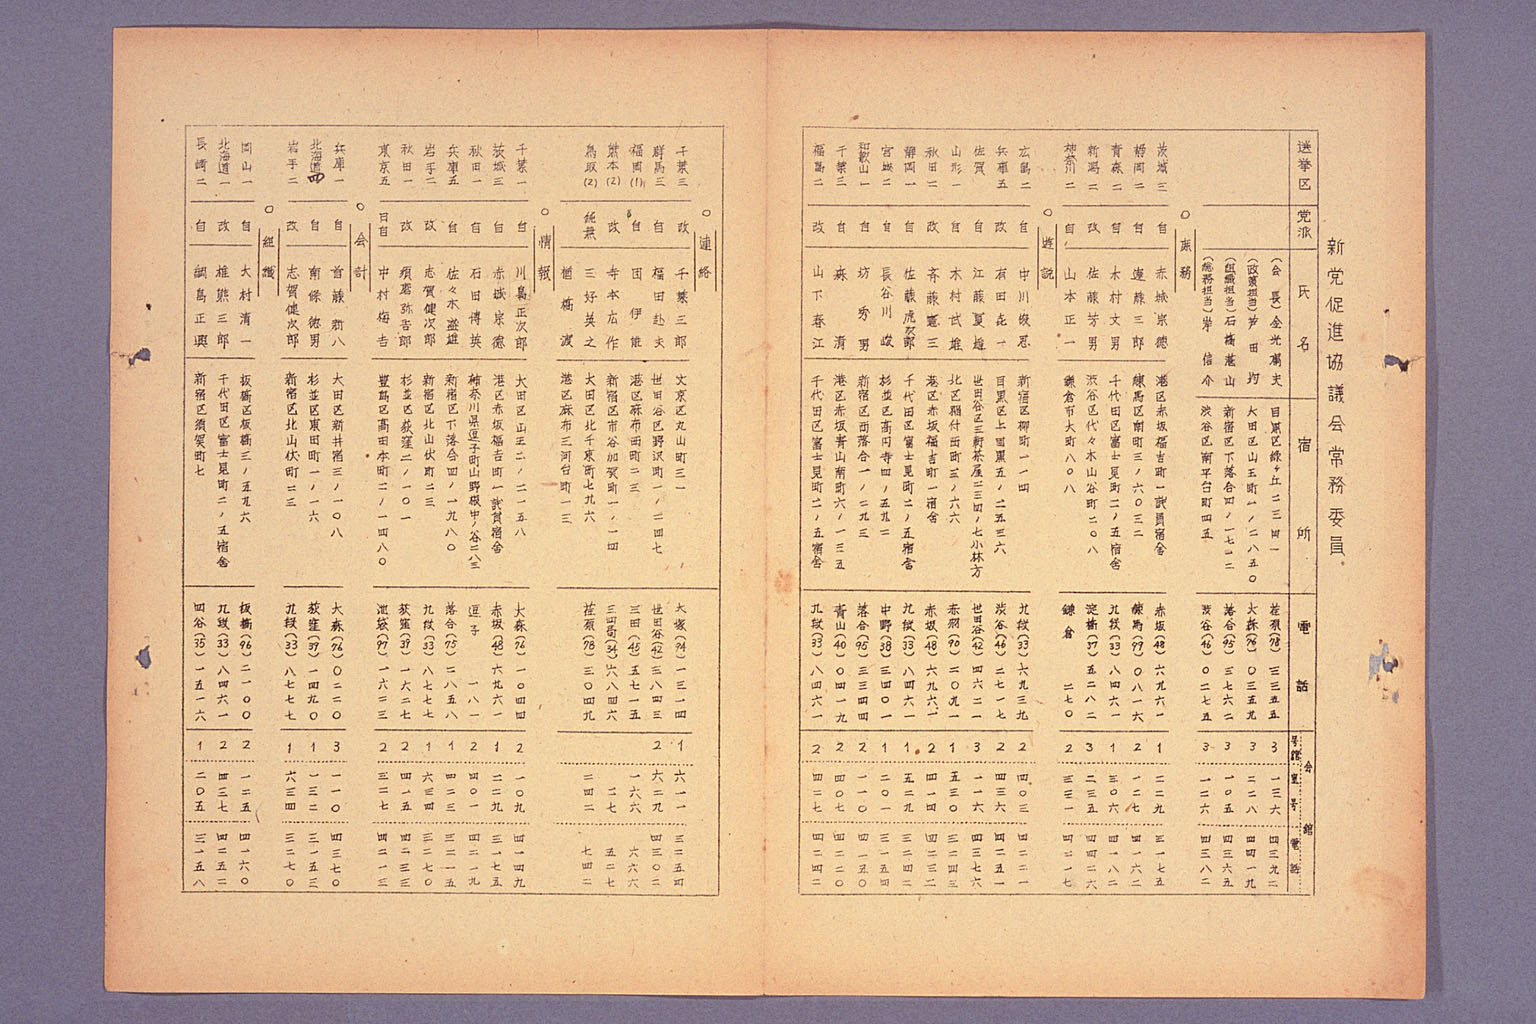 新党促進協議会常務委員
選挙区 党派 氏名 宿所 電話 会館 号館 室号 電話
(会長) 金光庸夫 目黒区緑ヶ丘二三四一 荏原(78)三三五五 3 一三六 四三九二
(政策担当) 芦田均 大田区山王町一ノ二八五〇 大森(76)〇三五九 3 二二八 四四一九
(組織担当) 石橋湛山 新宿区下落合四ノ一七一二 落合(95)三七六二 3 一〇五 四三六五
(総務担当) 岸信介 渋谷区南平台町四五 渋谷(46)〇二七五 3 一二六 四三八二
○庶務
茨城三 自 赤城宗徳 港区赤坂福吉町一議員宿舎 赤坂(48)六九六一 1 二二九 三一七五
静岡二 自 遠藤三郎 練馬区南町三ノ六〇三二 練馬(99)〇八一六 2 一二七 四一六二
青森二 改 木村文男 千代田区富士見町二ノ五宿舎 九段(33)八四六一 1 三〇六 四一八二
新潟二 改 佐藤芳男 渋谷区代々木山谷町二〇八 淀橋(37)五二八二 3 二三五 四四二六
神奈川二 自 山本正一 鎌倉市大町八〇八 鎌倉 二七〇 2 三三一 四二一七
○遊説
広島二 自 中川俊思 新宿区柳町一一四 九段(33)六九三九 2 四〇三 四二二一
兵庫五 改 有田喜一 目黒区上目黒五ノ二五三六 渋谷(46)二七一七 2 四三六 四二五一
佐賀 自 江藤夏雄 世田谷区三軒茶屋二三四ノ七小林方 世田谷(42)四六二一 3 一一六 四三七六
山形一 自 木村武雄 北区稲付西町三ノ六六 赤羽(90)二〇九一 1 五三〇 三二四三
秋田二 改 斉藤憲三 港区赤坂福吉町一宿舎 赤坂(48)六九六一 2 四一四 四二三二
静岡一 自 佐藤虎次郎 千代田区富士見町二ノ五宿舎 九段(33)八四六一 1 五二九 三二四二
宮城二 自 長谷川峻 杉並区高円寺四ノ五九二 中野(38)三四〇一 1 二〇一 三一五四
和歌山一 自 坊秀男 新宿区西落合一ノ二九三 落合(95)二三四四 2 一一〇 四一五〇
千葉三 自 森清 港区赤坂青山南町六ノ一三五 青山(40)〇四一九 2 四〇七 四二二〇
福島二 改 山下春江 千代田区富士見町二ノ五宿舎 九段(33)八四六一 2 四二七 四二四二
○連絡
千葉三 改 千葉三郎 文京区丸山町三一 大塚(94)一三一四 1 六一一 三二五四
群馬三 自 福田赳夫 世田谷区野沢町一ノ二四七 世田谷(42)三八四三 2 六二九 四三〇二
福岡(1) 自 福田伊能 港区麻布西町二三 三田(45)五七一五 一六六 六六六
熊本(2) 改 寺本広作 新宿区市谷加賀町一ノ一四 三田局(34)六八四六 一二七 五二七
鳥取(2) 純無 三好英之 大田区北千束町七九六 荏原(78)三〇四九 二四二 七四二
楢橋渡 港区麻布三河台町一三
○情報
千葉一 自 川島正次郎 大田区山王二ノ二一五八 大森(76)一〇四四 2 一〇九 四一四九
茨城三 自 赤城宗徳 港区赤坂福吉町一議員宿舎 赤坂(48)六九六一 1 二二九 三一七五
秋田一 自 石田博英 神奈川県逗子町山野根中ノ谷二八三 逗子 一八一 2 四〇一 四二一九
兵庫五 自 佐々木盛雄 新宿区下落合四ノ一九八〇 落合(95)二八五八 1 四二三 三二一五
岩手二 改 志賀健次郎 新宿区北山伏町二三 九段(33)八七七七 1 六三四 三二七〇
秋田一 改 須磨弥吉郎 杉並区荻窪二ノ一〇一 荻窪(39)一六二七 2 四一五 四二三三
東京五 日自 中村梅吉 豊島区高田本町二ノ一四八〇 池袋(97)一六二三 2 三二七 四二一三
○会計
兵庫一 自 首藤新八 大田区新井宿三ノ一〇八 大森(76)〇二二〇 3 一一〇 四三七〇
北海道四 自 南條徳男 杉並区東田町一ノ一六 荻窪(39)一四九〇 1 一三二 三一五三
岩手二 改 志賀健次郎 新宿区北山伏町二三 九段(33)八七七七 1 六三四 三二七〇
○組織
岡山一 自 大村清一 板橋区板橋三ノ五九六 板橋(96)二一〇〇 2 一二五 四一六〇
北海道一 改 椎熊三郎 千代田区富士見町二ノ五宿舎 九段(33)八四六一 2 四三七 四二五二
長崎二 自 綱島正興 新宿区須賀町七 四谷(35)一五一六 1 二〇五 三一五八